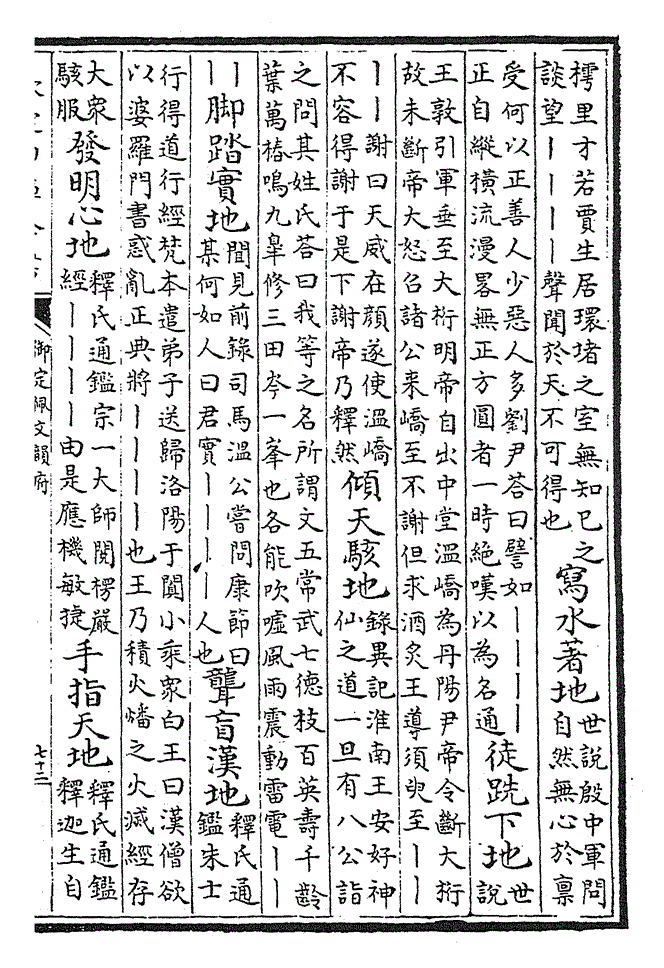 樗里才若賈生居環堵之室無知已之
談望丨丨丨丨聲聞於天不可得也
寫水著地
世說殷中軍問
自然無心於禀
受何以正善人少惡人多劉尹荅曰譬如丨丨丨丨
正自縱橫流漫畧無正方圓者一時絶嘆以為名通
徒跣下地
世
說
王敦引軍垂至大桁明帝自出中堂溫嶠為丹陽尹帝令斷大桁
故未斷帝大怒召諸公來嶠至不謝但求酒炙王導須臾至丨丨
丨丨謝曰天威在顔遂使溫嶠
不容得謝于是下謝帝乃釋然
傾天駭地
錄異記淮南王安好神
仙之道一旦有八公詣
之問其姓氏荅曰我等之名所謂文五常武七德枝百英壽千齡
葉萬椿鳴九皐修三田岑一峯也各能吹噓風雨震動雷電丨丨
丨丨
脚踏實地
聞見前錄司馬溫公嘗問康節曰
某何如人曰君實丨丨丨丨人也
聾盲漢地
釋氏通
鑑朱士
行得道行經梵本遣弟子送歸洛陽于闐小乘衆白王曰漢僧欲
以婆羅門書惑亂正典將丨丨丨丨也王乃積火燔之火滅經存
大衆
駭服
發明心地
釋氏通鑑宗一大師閱楞嚴
經丨丨丨丨由是應機敏捷
手指天地
釋氏通鑑
釋迦生自
御定佩文韻府
七十二